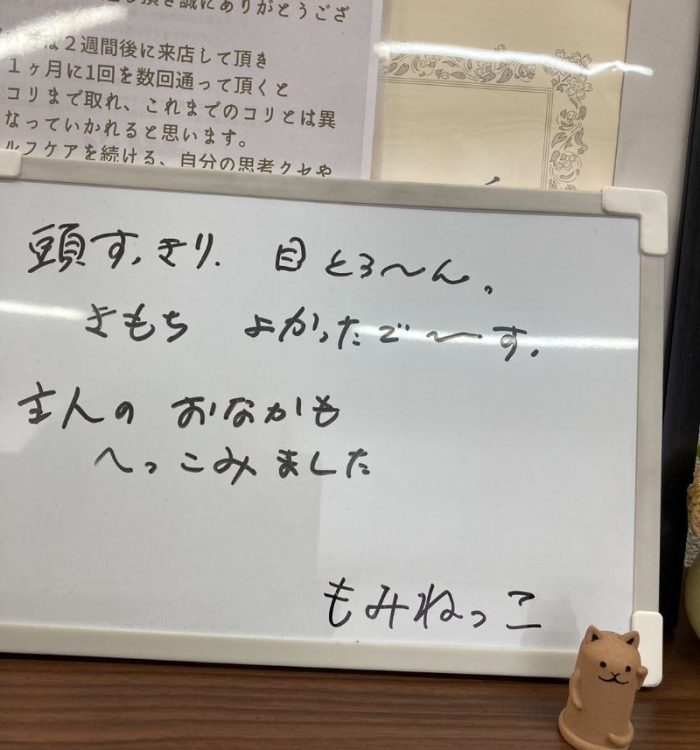 頂き誠にありがとうござ
は2週間後に来店して頂き
1ヶ月に1回を数回通って頂くと
コリまで取れ、これまでのコリとは異
なっていかれると思います。
ルフケアを続ける、自分の思考クセや
頭すっきり. 目とろ〜ん。
きもち よかったで〜す.
主人の おなかも
へっこみました
もみねっこ